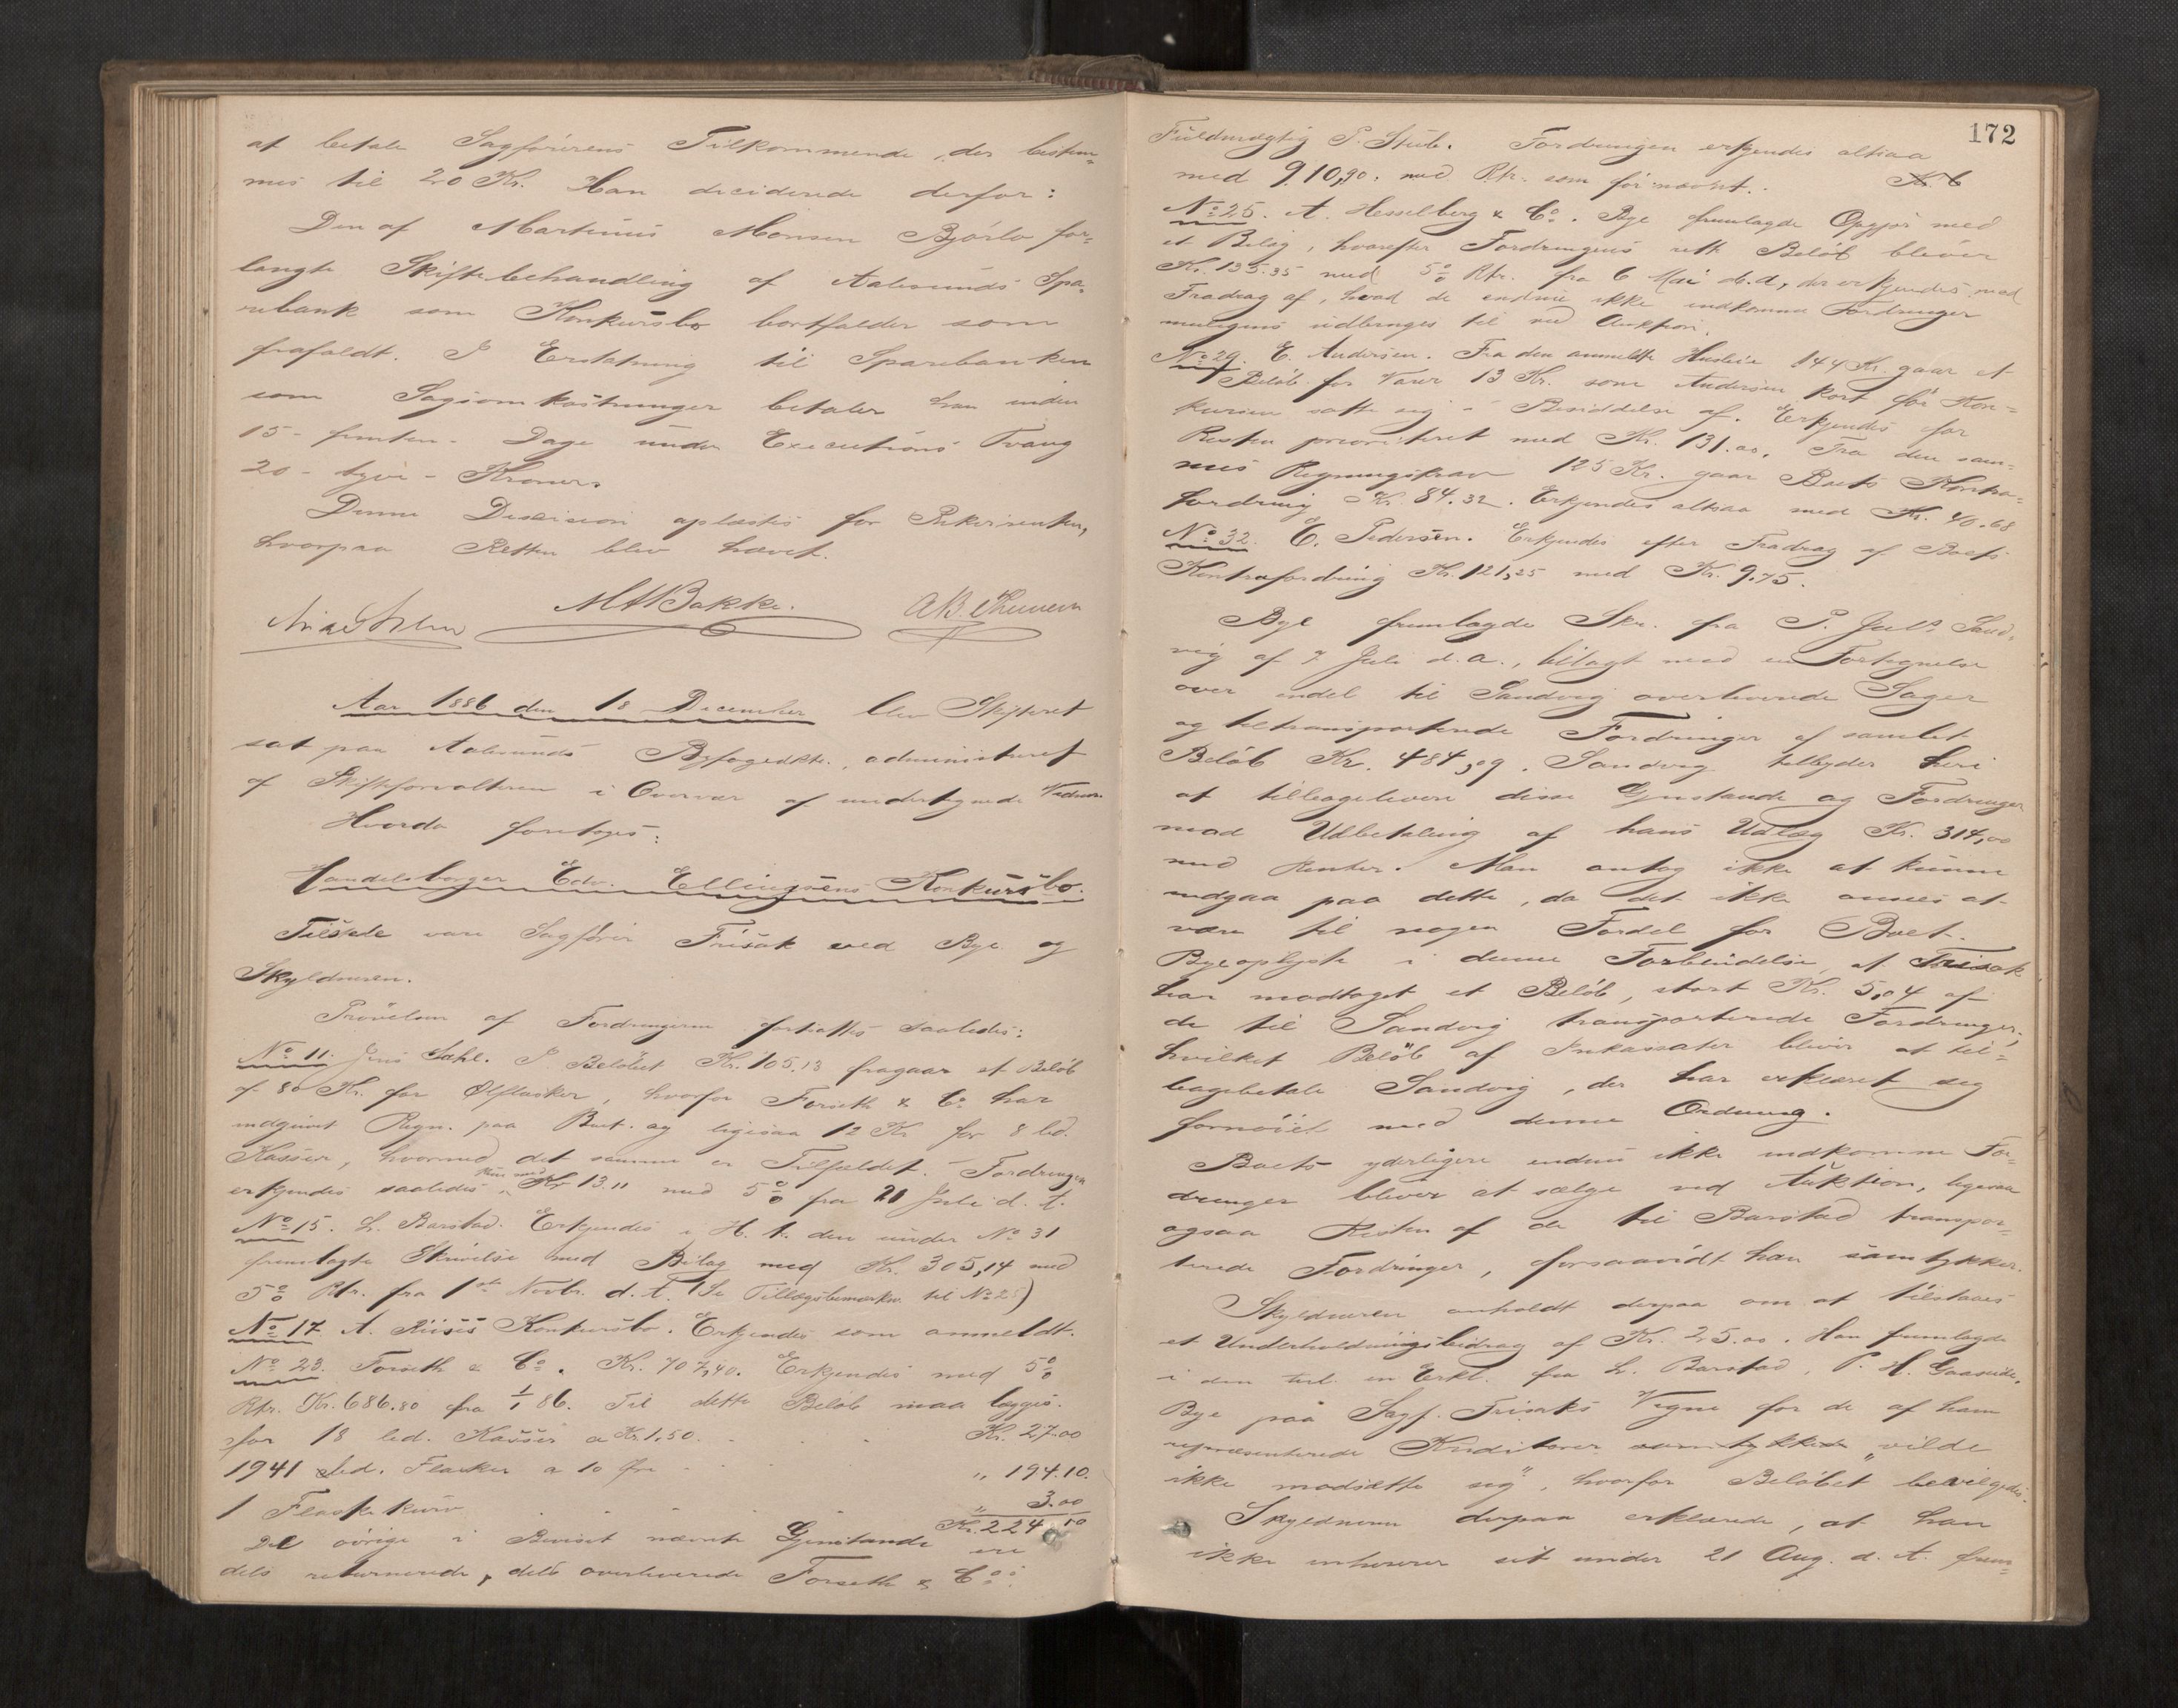 at betale Sagførerens Tilkommende, der bestem-
mes til 20 Kr. Han deciderede derfor:
Den af Martinus Monsen Bjørlo for-
langte Skiftebehandling af Aalesunds Spa-
rebank som Konkursbo bortfalder som
frafaldt. I Erstatning til Sparebanken
som Sagsomkostninger betaler han inden
15 - femten - Dage under Executions Tvang
20 - tyve - Kroner.
Denne Decision oplæstes for Rekvirenten,
hvorpaa Retten blev hævet.
M A Bakke.
Aar 1886 den 18 December blev Skifteret
sat paa Aalesunds Byfogedktr., administreret
af Skifteforvalteren i Overvær af undertegnede Vidner.
Hvorda foretoges:
Handelsborger Edv. Ellingsens Konkursbo.
Tilstede vare Sagfører Frisak ved Bye og
Skyldneren.
Prøvelsen af Fordringerne fortsattes saaledes:
No 11. Jens Dahl. I Beløbet Kr. 105.13 fragaar et Beløb
af 80 Kr. for Ølflasker, hvorfor Forseth & Co har
indgivet Regn. paa Boet. og ligesaa 12 Kr for 8 led.
Kasser, hvormed det samme er Tilfældet. Fordringen
erkjendes saaledes kun med Kr 13.11 med 5% fra 21 Juli d. A.
No 15. L. Barstad. Erkjendes i H. t. den under No 31
fremlagte Skrivelse med Bilag med Kr. 305,14 med
5% Rtr. fra 1ste Novbr. d. A. (Se Tillægsbemærkn. til No 25)
No 17. A. Riises Konkursbo. Erkjendes som anmeldt.
No 23. Forseth & Co. Kr. 707,40. Erkjendes med 5%
Rtr. Kr. 686.80 fra 1/1 86. Til dette Beløb maa lægges.
for 18 led. Kasser a Kr. 1,50. . . Kr. 27.00
1941 led. Flasker a 10 Øre . . . " 194.10.
1 Flaskekurv . . . . " 3.00
Kr. 224.10
De øvrige i Beviset nævnte Gjenstande ere
dels returnerede, dels overleverede Forseth & Co's
172
Fuldmægtig P. Stub. Fordringen erkjendes altsaa
med 910,90. med Rtr. som før nævnt.
No 25. A. Hesselberg & Co. Bye fremlagde Opgjør med
et Bilag, hvorefter Fordringens rette Beløb bliver
Kr. 135.35 med 5% Rtr. fra 6 Mai d. A., der erkjendes med
Fradrag af, hvad de endnu ikke indkomne Fordringer
muligens udbringes til ved Auktion.
No 29. E. Andersen. Fra den anmeldte Husleie 144 Kr. gaar et
Beløb for Varer 13 Kr. som Andersen kort før Kon-
kursen satte sig i Besiddelse af. Erkjendes for
Resten prioriteret med Kr. 131.00. Fra den sam-
mes Regningskrav 125 Kr. gaar Boets Kontra-
fordring Kr. 84.32. Erkjendes altsaa med Kr. 40.68
No 32. C. Pedersen. Erkjendes efter Fradrag af Boets
Kontrafordring Kr. 121,25 med Kr. 9.75.
Bye fremlagde Skr. fra P. Jul. Sand-
vig af 7 Juli d. A., bilagt med en Fortegnelse
over endel til Sandvig overleverede Sager
og tiltransporterede Fordringer af samlet
Beløb Kr. 484,09. Sandvig tilbyder heri
at tilbagelevere disse Gjenstande og Fordringer
mod Udbetaling af hans Udlæg Kr. 314,00
med Renter. Man antog ikke at kunne
indgaa paa dette, da det ikke ansees at
være til nogen Fordel for Boet.
Bye oplyste i denne Forbindelse, at Frisak
har modtaget et Beløb, stort Kr. 5,04 af
de til Sandvig transporterede Fordringer,
hvilket Beløb af Inkassator bliver at til-
bagebetale Sandvig, der har erklæret sig
fornøiet med denne Ordning.
Boets yderligere endnu ikke indkomne For-
dringer bliver at sælge ved Auktion, ligesaa
ogsaa Resten af de til Barstad transpor-
terede Fordringer, forsaavidt han samtykker.
Skyldneren anholdt derpaa om at tilstaaes
et Underholdningsbidrag af Kr. 25.00. Han fremlagde
i den Anl. en Erkl. fra L. Barstad, P. H. Gaaseide.
Bye paa Sagf. Frisaks Vegne for de af ham
repræsenterede Kreditorer samtykkede "vilde
ikke modsætte sig", hvorfor Beløbet bevilgedes.
Skyldneren derpaa erklærede, at han
ikke inhærerer sit under 21 Aug. d. A. frem-